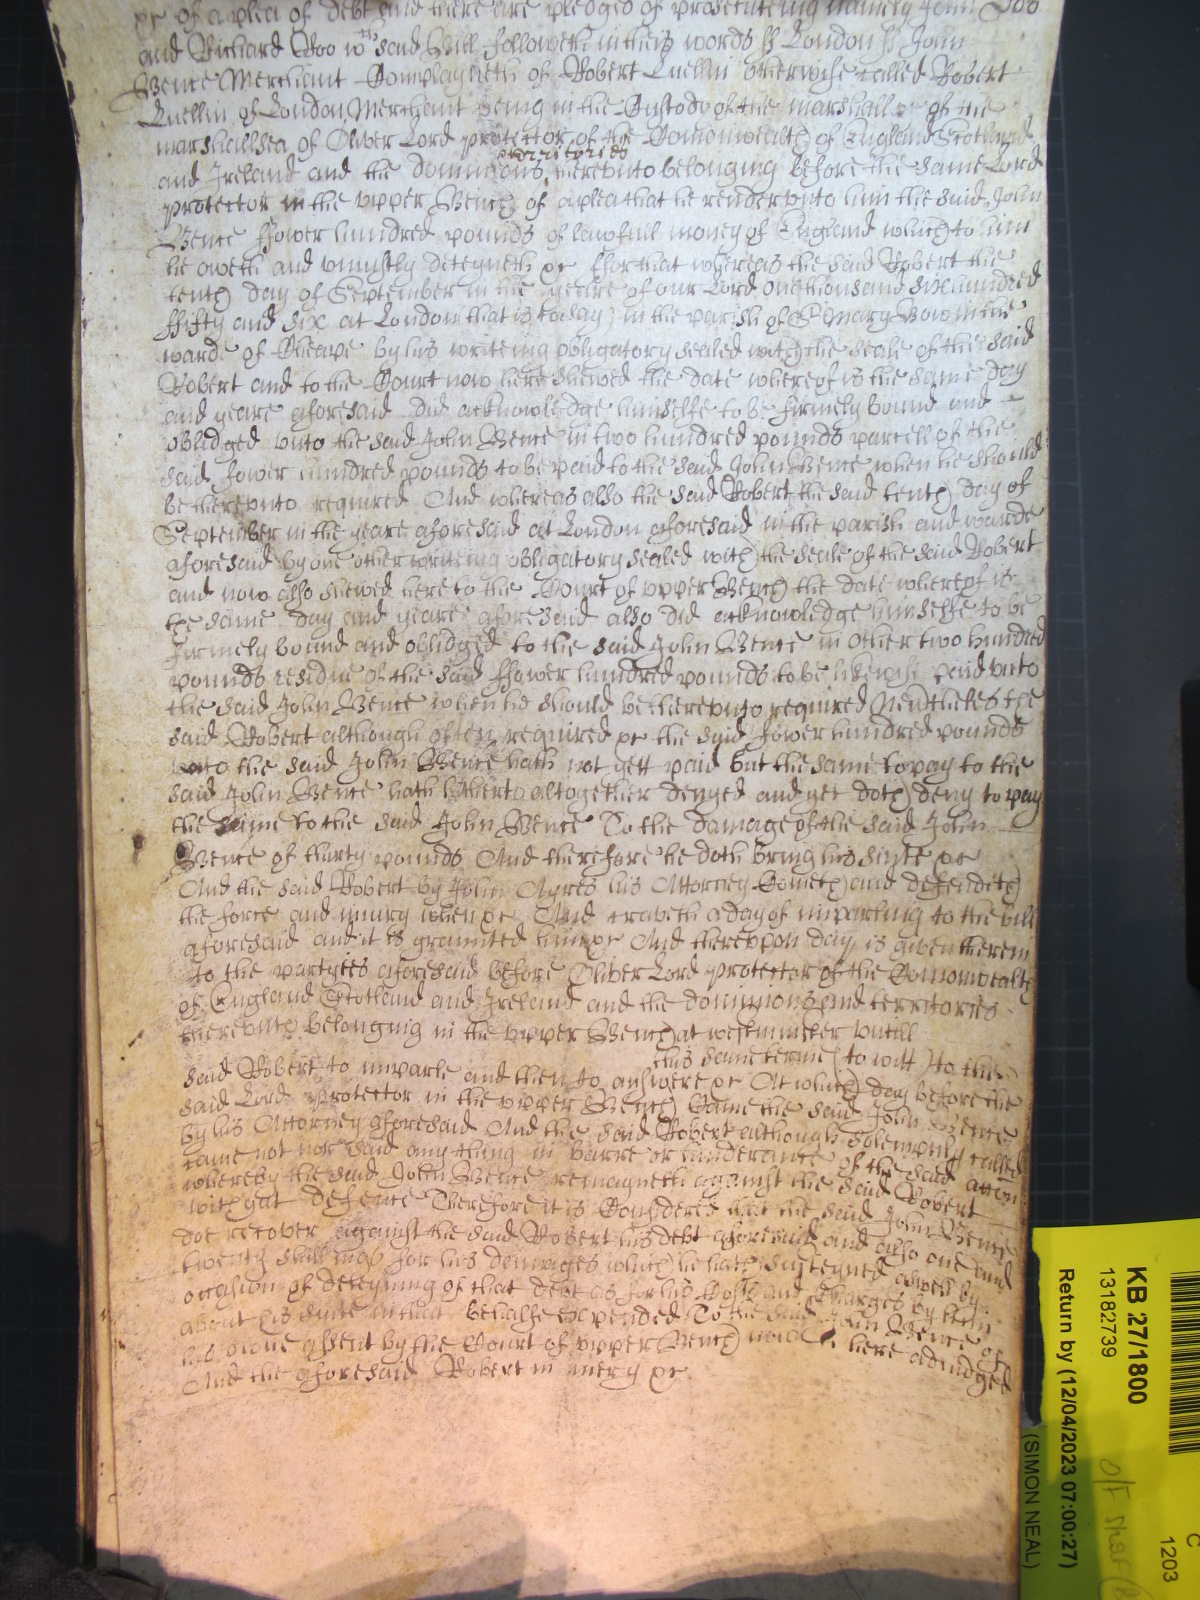 &c of a plea of debt and there are pledges of prosecuteing namely John Doo
and Richard Roo wch said Bill followeth in theis words ss London ss John
Bence Merchant Complayneth of Robert Luellin otherwise called Robert
Luellin of London Merchant being in the Custody of the marshall &c of the
marshallsea of Oliver Lord protector of the Comonwealth of England Scotland
territories
and Ireland and the dominions thereunto belonging before the same Lord
protector in the upper Bench of a plea that he render unto him the said John
Bence ffower hundred pounds of lawfull money of England which to him
he oweth and uniustly deteyneth &c ffor that whereas the said Robert the
tenth day of September in the yeare of our Lord one thousand six hundred
ffifty and six at London that is to say in the parish of St Mary Bow in the
ward of Cheape by his writeing obligatory sealed with the seale of the said
Robert and to the Court now here shewed the date whereof is the same day
and yeare aforesaid did acknowledge himselfe to be firmely bound and
obledged unto the said John Bence in two hundred pounds parcell of the
said fower hundred pounds to be paid to the said John Bence when he should
be thereunto required And whereas also the said Robert the said tenth day of
September in the yeare aforesaid at London aforesaid in the parish and warde
aforesaid by one other writeing obligatory sealed with the seale of the said Robert
and now also shewed here to the Court of upper Bench the date whereof is
the same day and yeare aforesaid also did acknowledge himselfe to be
firmely bound and obledged to the said John Bence in other two hundred
pounds residue of the said ffower hundred pounds to be likewise paid unto
the said John Bence when hee should be thereunto required Neverthelesse the
said Robert although often required &c the said fower hundred pounds
unto the said John Bence hath not yett paid but the same to pay to the
said John Bence hath hitherto altogether denyed and yet doth deny to pay
the same to the said John Bence To the damage of the said John
Bence of thirty pounds And therefore he doth bring his suite &c
And the said Robert by John Ayres his Attorney Cometh and defendeth
the force and iniury when &c And craveth a day of imparling to the bill
aforesaid and it is graunted him &c And thereupon day is given therein
to the partyes aforesaid before Oliver Lord protector of the Comonwealth
of England Scotland and Ireland and the dominions and territories
thereunto belonging in the upper Bench at westminster untill
this same terme (to witt) to the
said Robert to imparle and then to answere &c At which day before the
said Lord protector in the upper Bench Came the said John Bence
by his Attorney aforesaid And the said Robert although solempnly called
came not nor said any thing in barre or hinderance of the said accon
whereby the said John Bence remayneth against the said Robert
without defence Therefore it is Considered that the said John Bence
doe recover against the said Robert his debt aforesaid and also one and
twenty shillings for his damages which he hath susteyned aswell by
occasion of deteyning of that debt as for his Costs and Charges by him
about his suite in that behalfe expended To the said John Bence of
his owne assent by the Court of upper Bench now here adiudged
And the aforesaid Robert in mercy &c
KB 27/1800
13182739
Return by (12/04/2023 07:00:27)
(SIMON NEAL)
C
1203